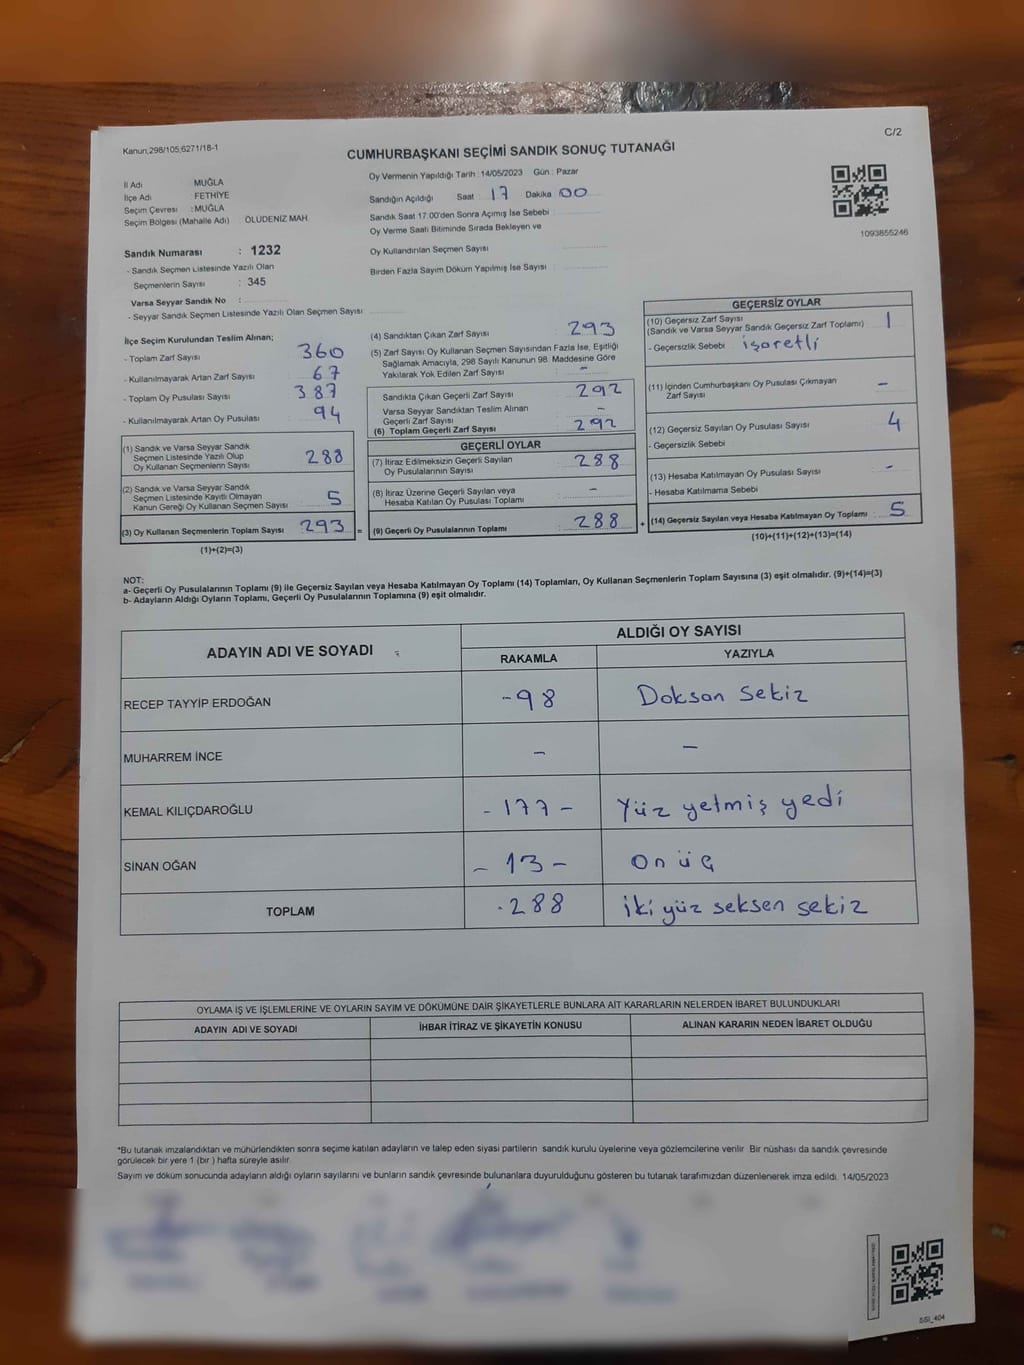 Kanun,298/105,6271/18-1
C/2
CUMHURBAŞKANI SEÇİMİ SANDIK SONUÇ TUTANAĞI
İl Adı : MUĞLA
İlçe Adı : FETHİYE
Seçim Çevresi : MUĞLA
Seçim Bölgesi (Mahalle Adı) ÖLÜDENİZ MAH
Sandık Numarası : 1232
- Sandık Seçmen Listesinde Yazılı Olan
Seçmenlerin Sayısı : 345
Varsa Seyyar Sandık No :
- Seyyar Sandık Seçmen Listesinde Yazılı Olan Seçmen Sayısı
Oy Vermenin Yapıldığı Tarih : 14/05/2023 Gün : Pazar
Sandığın Açıldığı Saat : 17 Dakika : 00
Sandık Saat 17.00'den Sonra Açımış İse Sebebi :
Oy Verme Saati Bitiminde Sırada Bekleyen ve
Oy Kullandırılan Seçmen Sayısı
Birden Fazla Sayım Döküm Yapılmış İse Sayısı :
1093855246
İlçe Seçim Kurulundan Teslim Alınan;
- Toplam Zarf Sayısı : 360
- Kullanılmayarak Artan Zarf Sayısı : 67
- Toplam Oy Pusulası Sayısı : 387
- Kullanılmayarak Artan Oy Pusulası : 94
(1) Sandık ve Varsa Seyyar Sandık
Seçmen Listesinde Yazılı Olup
Oy Kullanan Seçmenlerin Sayısı : 288
(2) Sandık ve Varsa Seyyar Sandık
Seçmen Listesinde Kayıtlı Olmayan
Kanun Gereği Oy Kullanan Seçmen Sayısı : 5
(3) Oy Kullanan Seçmenlerin Toplam Sayısı : 293 =
(1)+(2)=(3)
(4) Sandıktan Çıkan Zarf Sayısı : 293
(5) Zarf Sayısı Oy Kullanan Seçmen Sayısından Fazla İse, Eşitliği
Sağlamak Amacıyla, 298 Sayılı Kanunun 98. Maddesine Göre
Yakılarak Yok Edilen Zarf Sayısı : -
Sandıkta Çıkan Geçerli Zarf Sayısı : 292
Varsa Seyyar Sandıktan Teslim Alınan
Geçerli Zarf Sayısı : -
(6) Toplam Geçerli Zarf Sayısı : 292
GEÇERLİ OYLAR
(7) İtiraz Edilmeksizin Geçerli Sayılan
Oy Pusulalarının Sayısı : 288
(8) İtiraz Üzerine Geçerli Sayılan veya
Hesaba Katılan Oy Pusulası Toplamı : -
(9) Geçerli Oy Pusulalarının Toplamı : 288 +
GEÇERSİZ OYLAR
(10) Geçersiz Zarf Sayısı
(Sandık ve Varsa Seyyar Sandık Geçersiz Zarf Toplamı) : 1
- Geçersizlik Sebebi : işaretli
(11) İçinden Cumhurbaşkanı Oy Pusulası Çıkmayan
Zarf Sayısı : -
(12) Geçersiz Sayılan Oy Pusulası Sayısı : 4
- Geçersizlik Sebebi
(13) Hesaba Katılmayan Oy Pusulası Sayısı : -
- Hesaba Katılmama Sebebi
(14) Geçersiz Sayılan veya Hesaba Katılmayan Oy Toplamı : 5
(10)+(11)+(12)+(13)=(14)
NOT:
a- Geçerli Oy Pusulalarının Toplamı (9) ile Geçersiz Sayılan veya Hesaba Katılmayan Oy Toplamı (14) Toplamları, Oy Kullanan Seçmenlerin Toplam Sayısına (3) eşit olmalıdır. (9)+(14)=(3)
b- Adayların Aldığı Oyların Toplamı, Geçerli Oy Pusulalarının Toplamına (9) eşit olmalıdır.
ADAYIN ADI VE SOYADI
ALDIĞI OY SAYISI
RAKAMLA YAZIYLA
RECEP TAYYİP ERDOĞAN -98 Doksan Sekiz
MUHARREM İNCE - -
KEMAL KILIÇDAROĞLU - 177 - Yüz yetmiş yedi
SİNAN OĞAN - 13 - on üç
TOPLAM 288 iki yüz seksen sekiz
OYLAMA İŞ VE İŞLEMLERİNE VE OYLARIN SAYIM VE DÖKÜMÜNE DAİR ŞİKAYETLERLE BUNLARA AİT KARARLARIN NELERDEN İBARET BULUNDUKLARI
ADAYIN ADI VE SOYADI İHBAR İTİRAZ VE ŞİKAYETİN KONUSU ALINAN KARARIN NEDEN İBARET OLDUĞU
*Bu tutanak imzalandıktan ve mühürlendikten sonra seçime katılan adayların ve talep eden siyasi partilerin sandık kurulu üyelerine veya gözlemcilerine verilir. Bir nüshası da sandık çevresinde
görülecek bir yere 1 (bir ) hafta süreyle asılır.
Sayım ve döküm sonucunda adayların aldığı oyların sayılarını ve bunların sandık çevresinde bulunanlara duyurulduğunu gösteren bu tutanak tarafımızdan düzenlenerek imza edildi. 14/05/2023
SSI_404